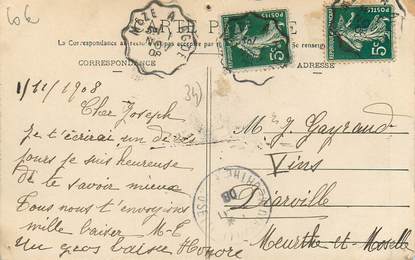 CARTE POSTALE
La Correspondance au
CORRESPONDANCE
ADRESSE
5c
5c
1/11/1908
Cher Joseph
Je t'écrirai un de ces
jours je suis heureuse
de te savoir mieux
Tous nous t'envoyons
mille baiser M-L
Un gros baiser Honoré
M. J. Gayraud
Vins
Diarville
Meurthe et Moselle